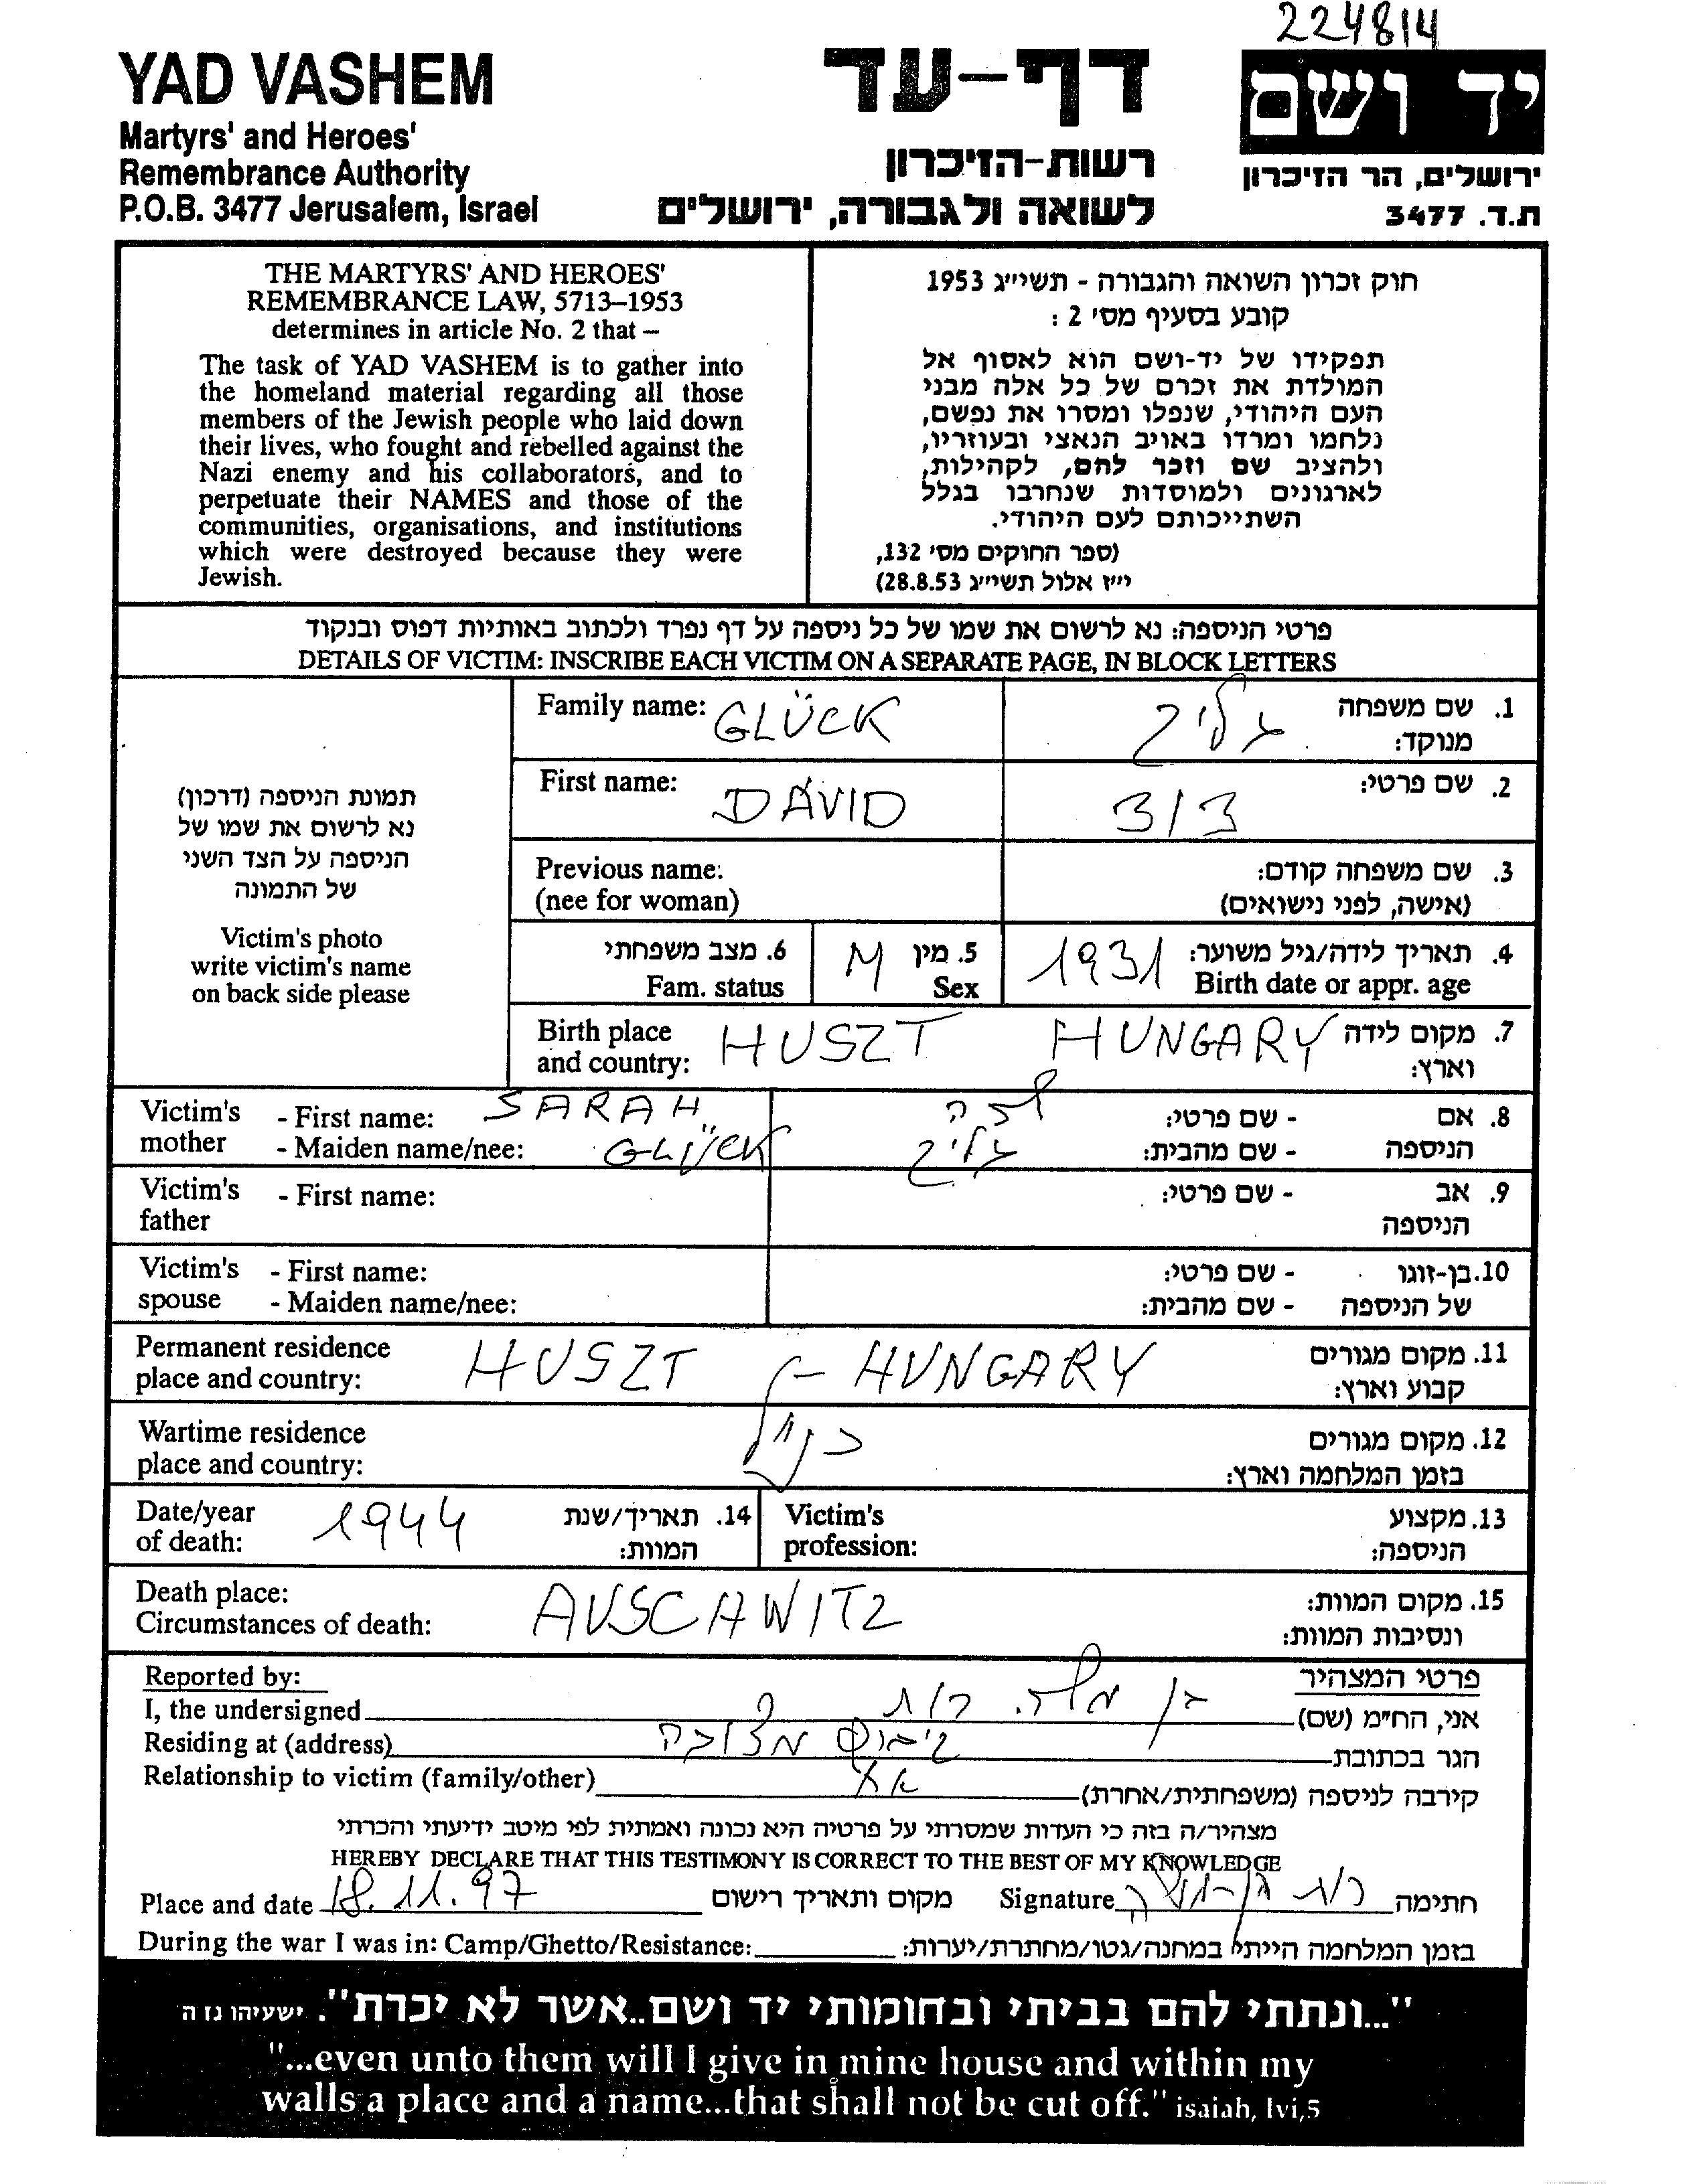 224814
YAD VASHEM
Martyrs' and Heroes'
Remembrance Authority
P.O.B. 3477 Jerusalem, Israel
דף-עד
רשות-הזיכרון
לשואה ולגבורה, ירושלים
יד ושם
ירושלים, הר הזיכרון
ת.ד. 3477
THE MARTYRS' AND HEROES'
REMEMBRANCE LAW, 5713–1953
determines in article No. 2 that –
The task of YAD VASHEM is to gather into
the homeland material regarding all those
members of the Jewish people who laid down
their lives, who fought and rebelled against the
Nazi enemy and his collaborators, and to
perpetuate their NAMES and those of the
communities, organisations, and institutions
which were destroyed because they were
Jewish.
חוק זכרון השואה והגבורה - תשי״ג 1953
קובע בסעיף מס׳ 2 :
תפקידו של יד-ושם הוא לאסוף אל
המולדת את זכרם של כל אלה מבני
העם היהודי, שנפלו ומסרו את נפשם,
נלחמו ומרדו באויב הנאצי ובעוזריו,
ולהציב שם וזכר להם, לקהילות,
לארגונים ולמוסדות שנחרבו בגלל
השתייכותם לעם היהודי.
(ספר החוקים מס׳ 132,
י״ז אלול תשי״ג 28.8.53)
פרטי הניספה: נא לרשום את שמו של כל ניספה על דף נפרד ולכתוב באותיות דפוס ובנקוד
DETAILS OF VICTIM: INSCRIBE EACH VICTIM ON A SEPARATE PAGE, IN BLOCK LETTERS
תמונת הניספה (דרכון)
נא לרשום את שמו של
הניספה על הצד השני
של התמונה
Victim's photo
write victim's name
on back side please
Family name: GLÜCK גליק 1. שם משפחה
מנוקד:
First name: DÁVID דוד 2. שם פרטי:
Previous name: 3. שם משפחה קודם:
(nee for woman) (אישה, לפני נישואים)
6. מצב משפחתי M 5. מין 1931 4. תאריך לידה/גיל משוער:
Fam. status Sex Birth date or appr. age
Birth place HUSZT HUNGARY 7. מקום לידה
and country: וארץ:
Victim's - First name: SARAH שרה - שם פרטי: 8. אם
mother - Maiden name/nee: GLÜCK גליק - שם מהבית: הניספה
Victim's - First name: - שם פרטי: 9. אב
father הניספה
Victim's - First name: - שם פרטי: 10. בן-זוגו
spouse - Maiden name/nee: - שם מהבית: של הניספה
Permanent residence HUSZT - HUNGARY 11. מקום מגורים
place and country: קבוע וארץ:
Wartime residence כנ״ל 12. מקום מגורים
place and country: בזמן המלחמה וארץ:
Date/year 1944 14. תאריך/שנת Victim's 13. מקצוע
of death: המוות: profession: הניספה:
Death place: AUSCHWITZ 15. מקום המוות:
Circumstances of death: ונסיבות המוות:
Reported by: פרטי המצהיר
I, the undersigned רות בן משה אני, הח״מ (שם)
Residing at (address) קיבוץ מצובה הגר בכתובת
Relationship to victim (family/other) אח קירבה לניספה (משפחתית/אחרת)
מצהיר/ה בזה כי העדות שמסרתי על פרטיה היא נכונה ואמתית לפי מיטב ידיעתי והכרתי
HEREBY DECLARE THAT THIS TESTIMONY IS CORRECT TO THE BEST OF MY KNOWLEDGE
Place and date 18.11.97 מקום ותאריך רישום Signature רות בן-משה חתימה
During the war I was in: Camp/Ghetto/Resistance: בזמן המלחמה הייתי במחנה/גטו/מחתרת/יערות:
"...ונתתי להם בביתי ובחומותי יד ושם..אשר לא יכרת". ישעיהו נז ה
"...even unto them will I give in mine house and within my
walls a place and a name...that shall not be cut off." isaiah, lvi,5